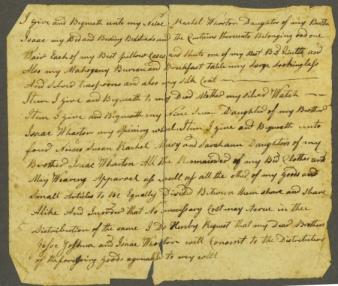 I give and Bequeth unto my Neice Rachel Wharton Daughter of my Brother
Isaac my Bed and Beding Bedsteads and the Curtains thereunto Belonging and one
Pair Each of my Best pillow Cases and Sheets one of my Best Bed Quilts and
Also my Mahogony Bureau and Breakfast table my large Lookingglass
And Silver teaspoons and also my Silk Coat
Item I give and Bequeth to my Dear Mother my Silver Watch
Item I give and Bequeth my Niece Susan Daughter of my Brother
Isaac Wharton my Spining wheel Item I give and Bequeth unto
Nieces Susan Rachel Mary and Daughters of my
Brother Isaac Wharton All the Remainder of my Bed Clothes and
My Wearing Apparrel up well as all the of my Goods and
Small Articles to be Equally Divided Between them share and share
Alike And Inorder that No unnessary Cost may Accrue in the
Distribution of the same I Do Hereby Request that my Dear Brothers
Joshua and Isaac Wharton will Consent to the Distribution
of the foregoing Goods agreeable to my will